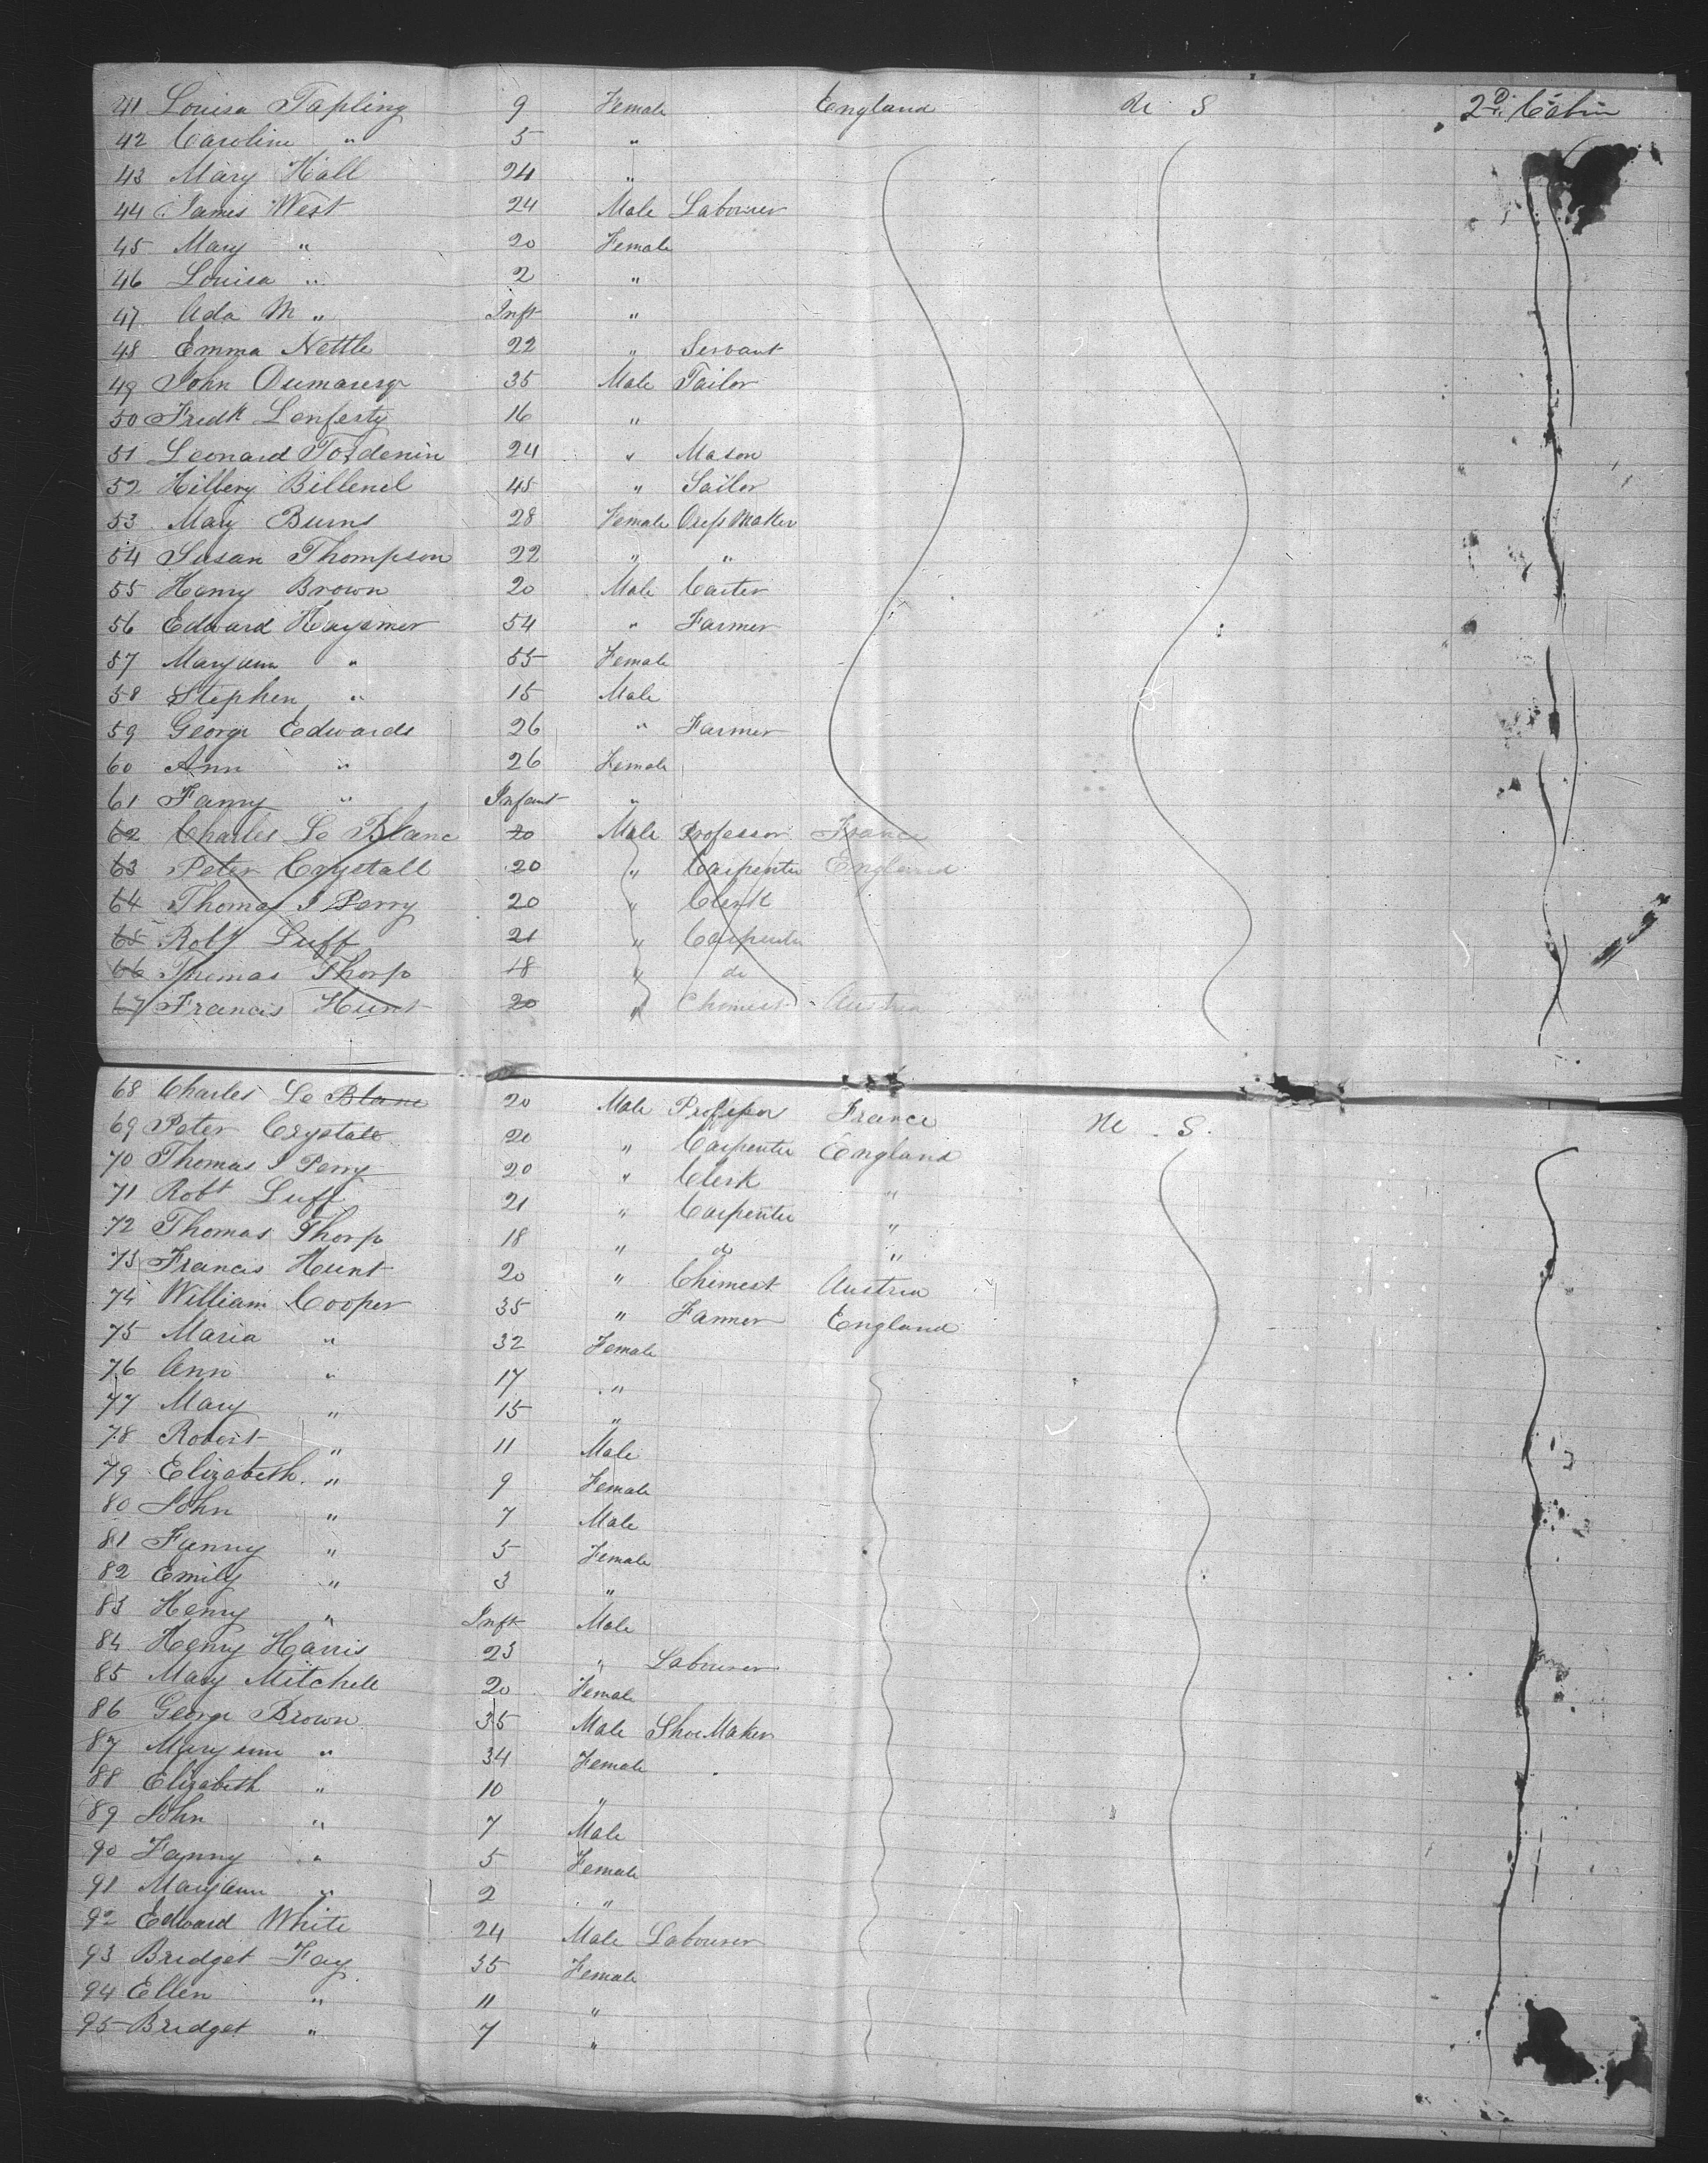 41 Louisa Tapling 9 Female England U. S 2D. Cabin
42 Caroline " 5 "
43 Mary Hall 24 "
44 James West 24 Male Labourer
45 Mary " 20 Female
46 Louisa " 2 "
47 Ada M " Inft "
48 Emma Nettle 22 " Servant
49 John Dumaresq 35 Male Tailor
50 Fredk Lenfesty 16 "
51 Leonard 24 " Mason
52 Hillery 45 " Sailor
53 Mary Burns 28 Female Dress Maker
54 Susan Thompson 22 " "
55 Henry Brown 20 Male Carter
56 Edward Haysmer 54 " Farmer
57 Maryann " 55 Female
58 Stephen " 15 Male
59 George Edwards 26 " Farmer
60 Ann " 26 Female
61 Fanny " Infant "
62 Charles Le Blanc 20 Male Professor France
63 Peter Crystall 20 " Carpenter England
64 Thomas J Perry 20 " Clerk
65 Robt Luff 21 " Carpenter
66 Thomas Thorp 18 " do
67 Francis Hunt 20 " Chemist Austria
68 Charles Le Blanc 20 Male Professor France U. S.
69 Peter Crystall 20 " Carpenter England
70 Thomas J Perry 20 " Clerk "
71 Robt Luff 21 " Carpenter "
72 Thomas Thorp 18 " do "
73 Francis Hunt 20 " Chimest Austria
74 William Cooper 35 " Farmer England
75 Maria " 32 Female
76 Ann " 17 "
77 Mary " 15 "
78 Robert " 11 Male
79 Elizabeth " 9 Female
80 John " 7 Male
81 Fanny " 5 Female
82 Emily " 3 "
83 Henry " Inft Male
84 Henry Harris 23 " Labourer
85 Mary Mitchell 20 Female
86 George Brown 35 Male Shoe Maker
87 Maryann " 34 Female
88 Elizabeth " 10 "
89 John " 7 Male
90 Fanny " 5 Female
91 Maryann " 2 "
92 Edward White 24 Male Labourer
93 Bridget Fay 35 Female
94 Ellen " 11 "
95 Bridget " 7 "